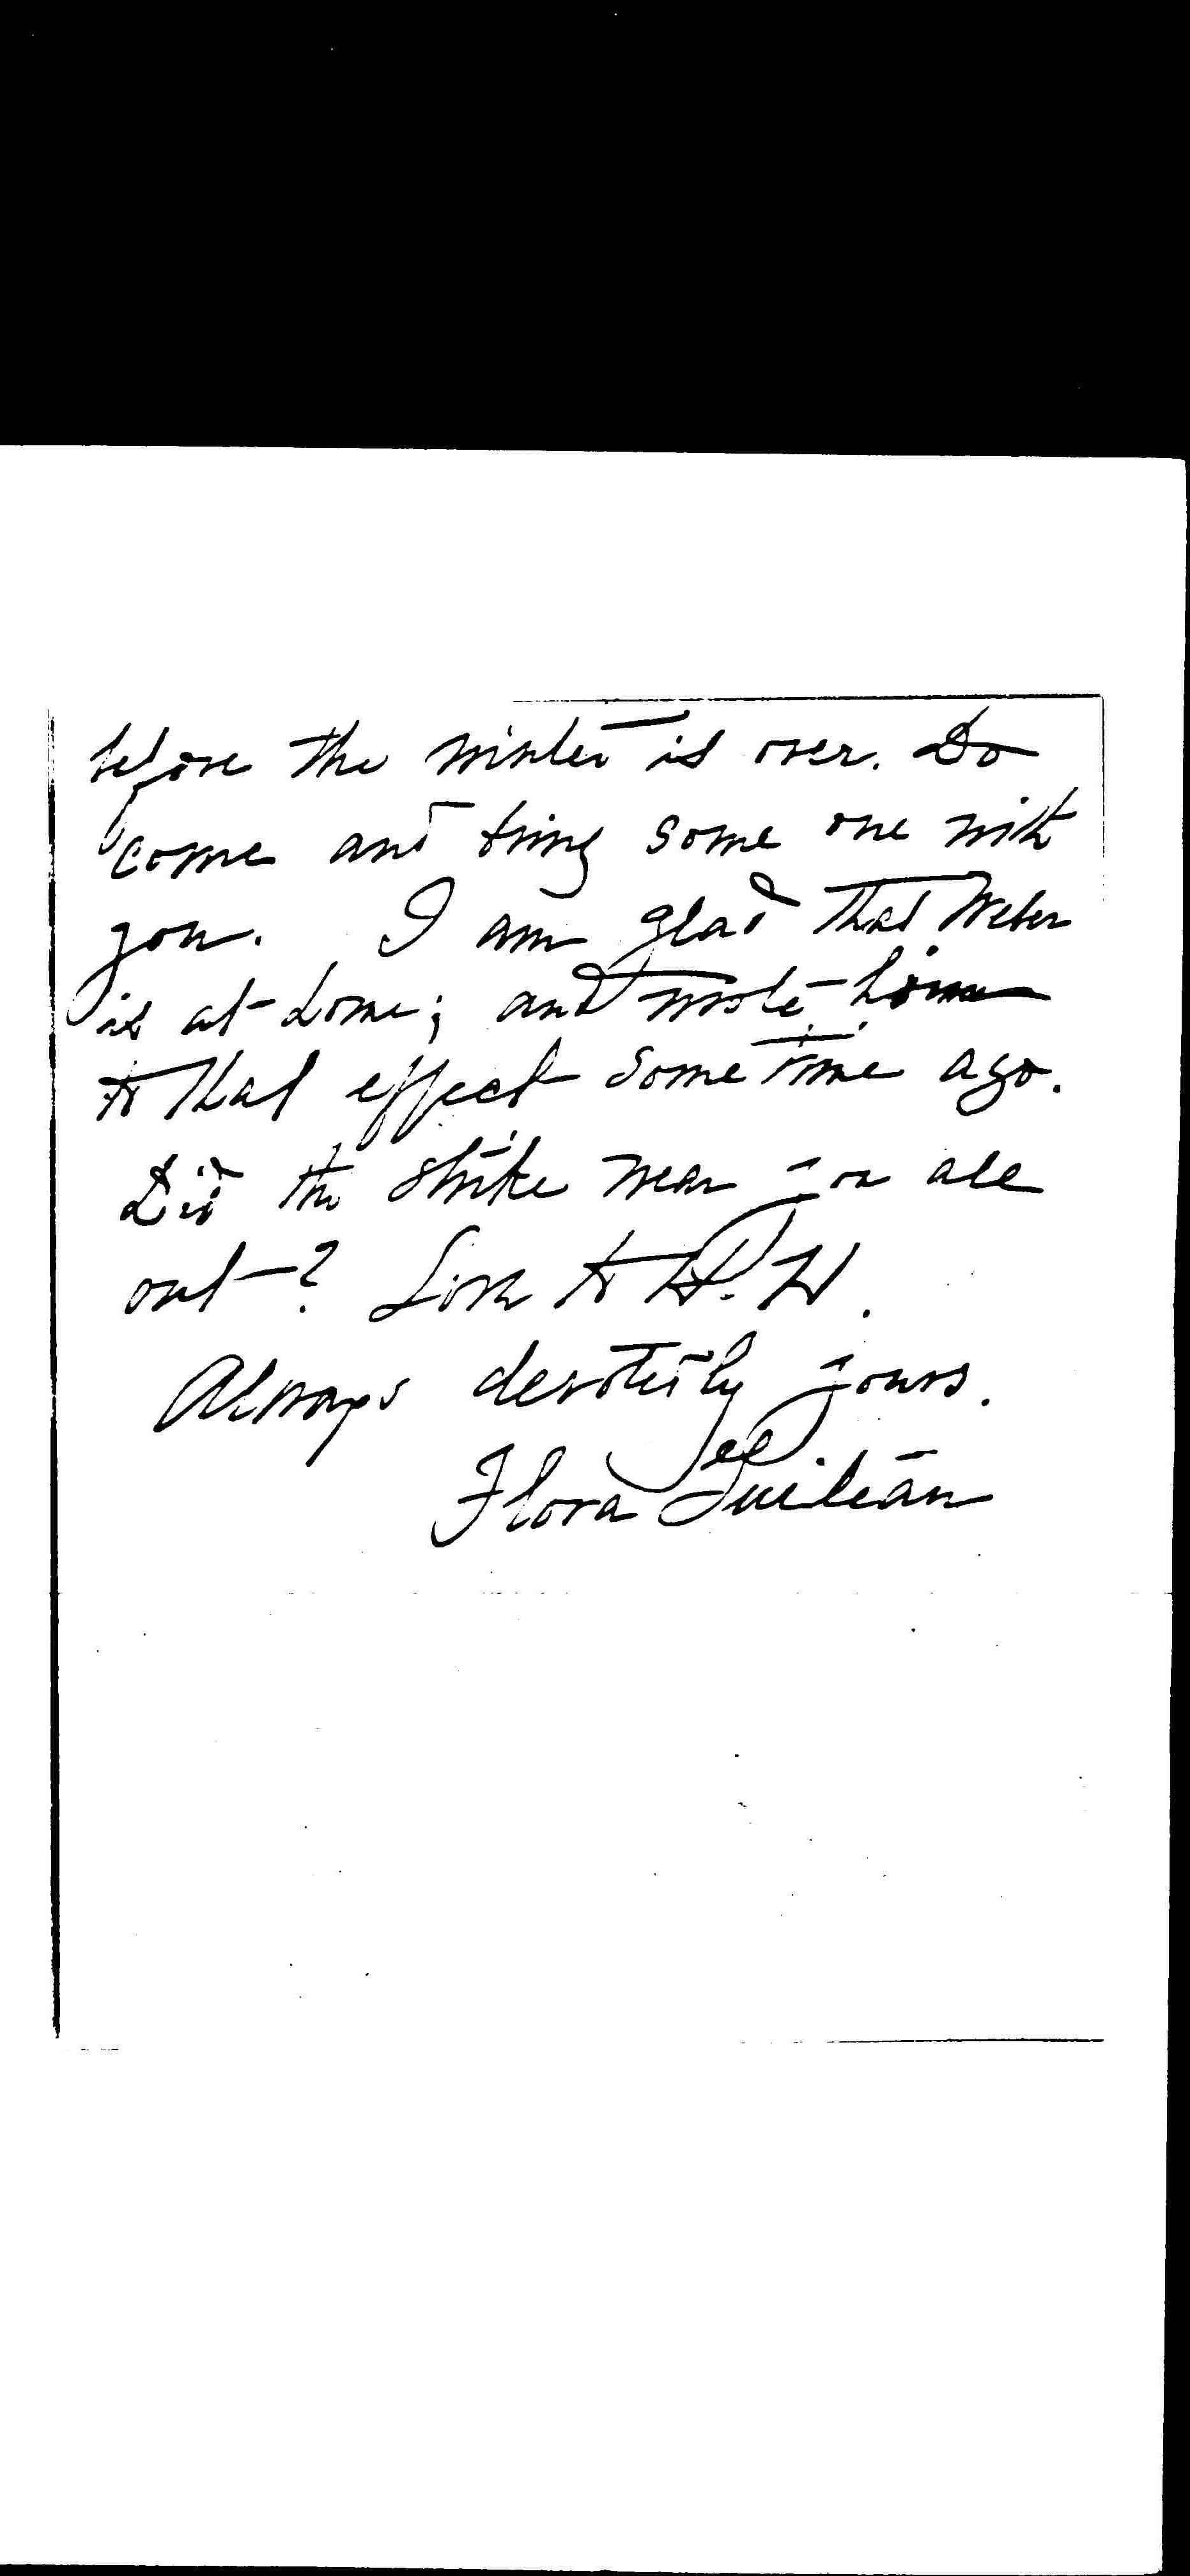 before the winter is over. Do
come and bring some one with
you. I am glad that Weber
is at home; and wrote him
to that effect some time ago.
Did the strike wear you all
out? Love to H. H.
Always devotedly yours.
Flora